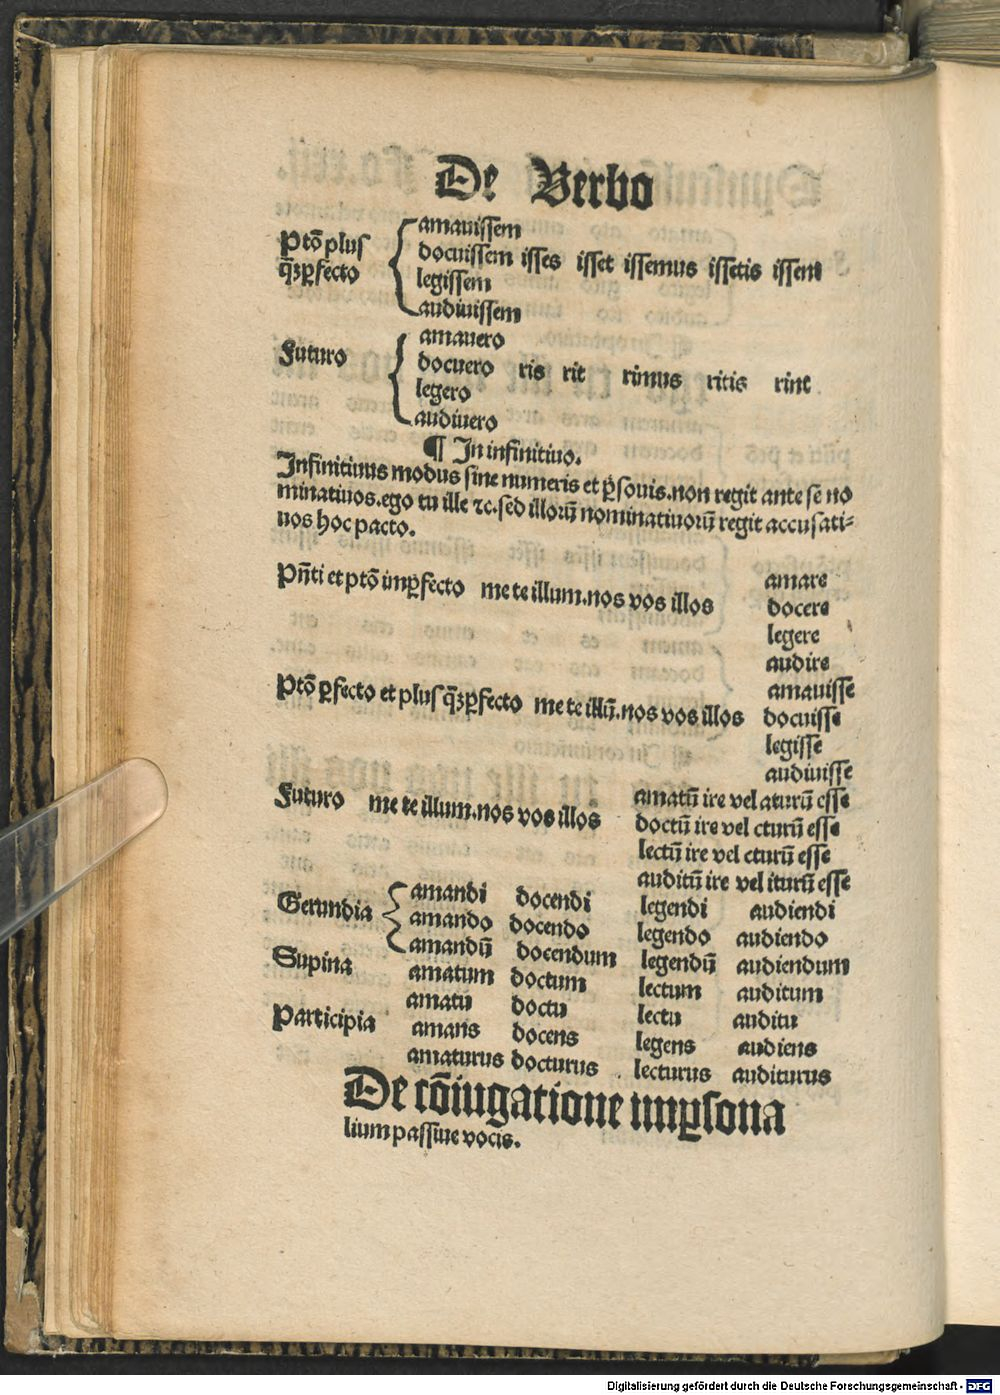 De Verbo
amauissem
Ptō plus
docuissem isses isset issemus issetis issent
q̄ꝫꝑfecto
legissem
audiuissem
amauero
Futuro
docuero ris rit rimus ritis rint
legero
audiuero
¶ In infinitiuo.
Infinitiuus modus sine numeris et ꝑsonis.non regit ante se no
minatiuos.ego tu ille ⁊c.sed illorū nominatiuorū regit accusati-
uos hoc pacto.
Pn̄ti et ptō imꝑfecto me te illum.nos vos illos amare
docere
legere
audire
Ptō ꝑfecto et plusq̄ꝫꝑfecto me te illū.nos vos illos amauisse
docuisse
legisse
audiuisse
Futuro me te illum.nos vos illos amatū ire vel aturū esse
doctū ire vel cturū esse
lectū ire vel cturū esse
auditū ire vel iturū esse
Gerundia amandi docendi legendi audiendi
amando docendo legendo audiendo
amandū docendum legendū audiendum
Supina amatum doctum lectum auditum
amatu doctu lectu auditu
Participia amans docens legens audiens
amaturus docturus lecturus auditurus
De cōiugatione imꝑsona
lium passiue vocis.
Digitalisierung gefördert durch die Deutsche Forschungsgemeinschaft - DFG